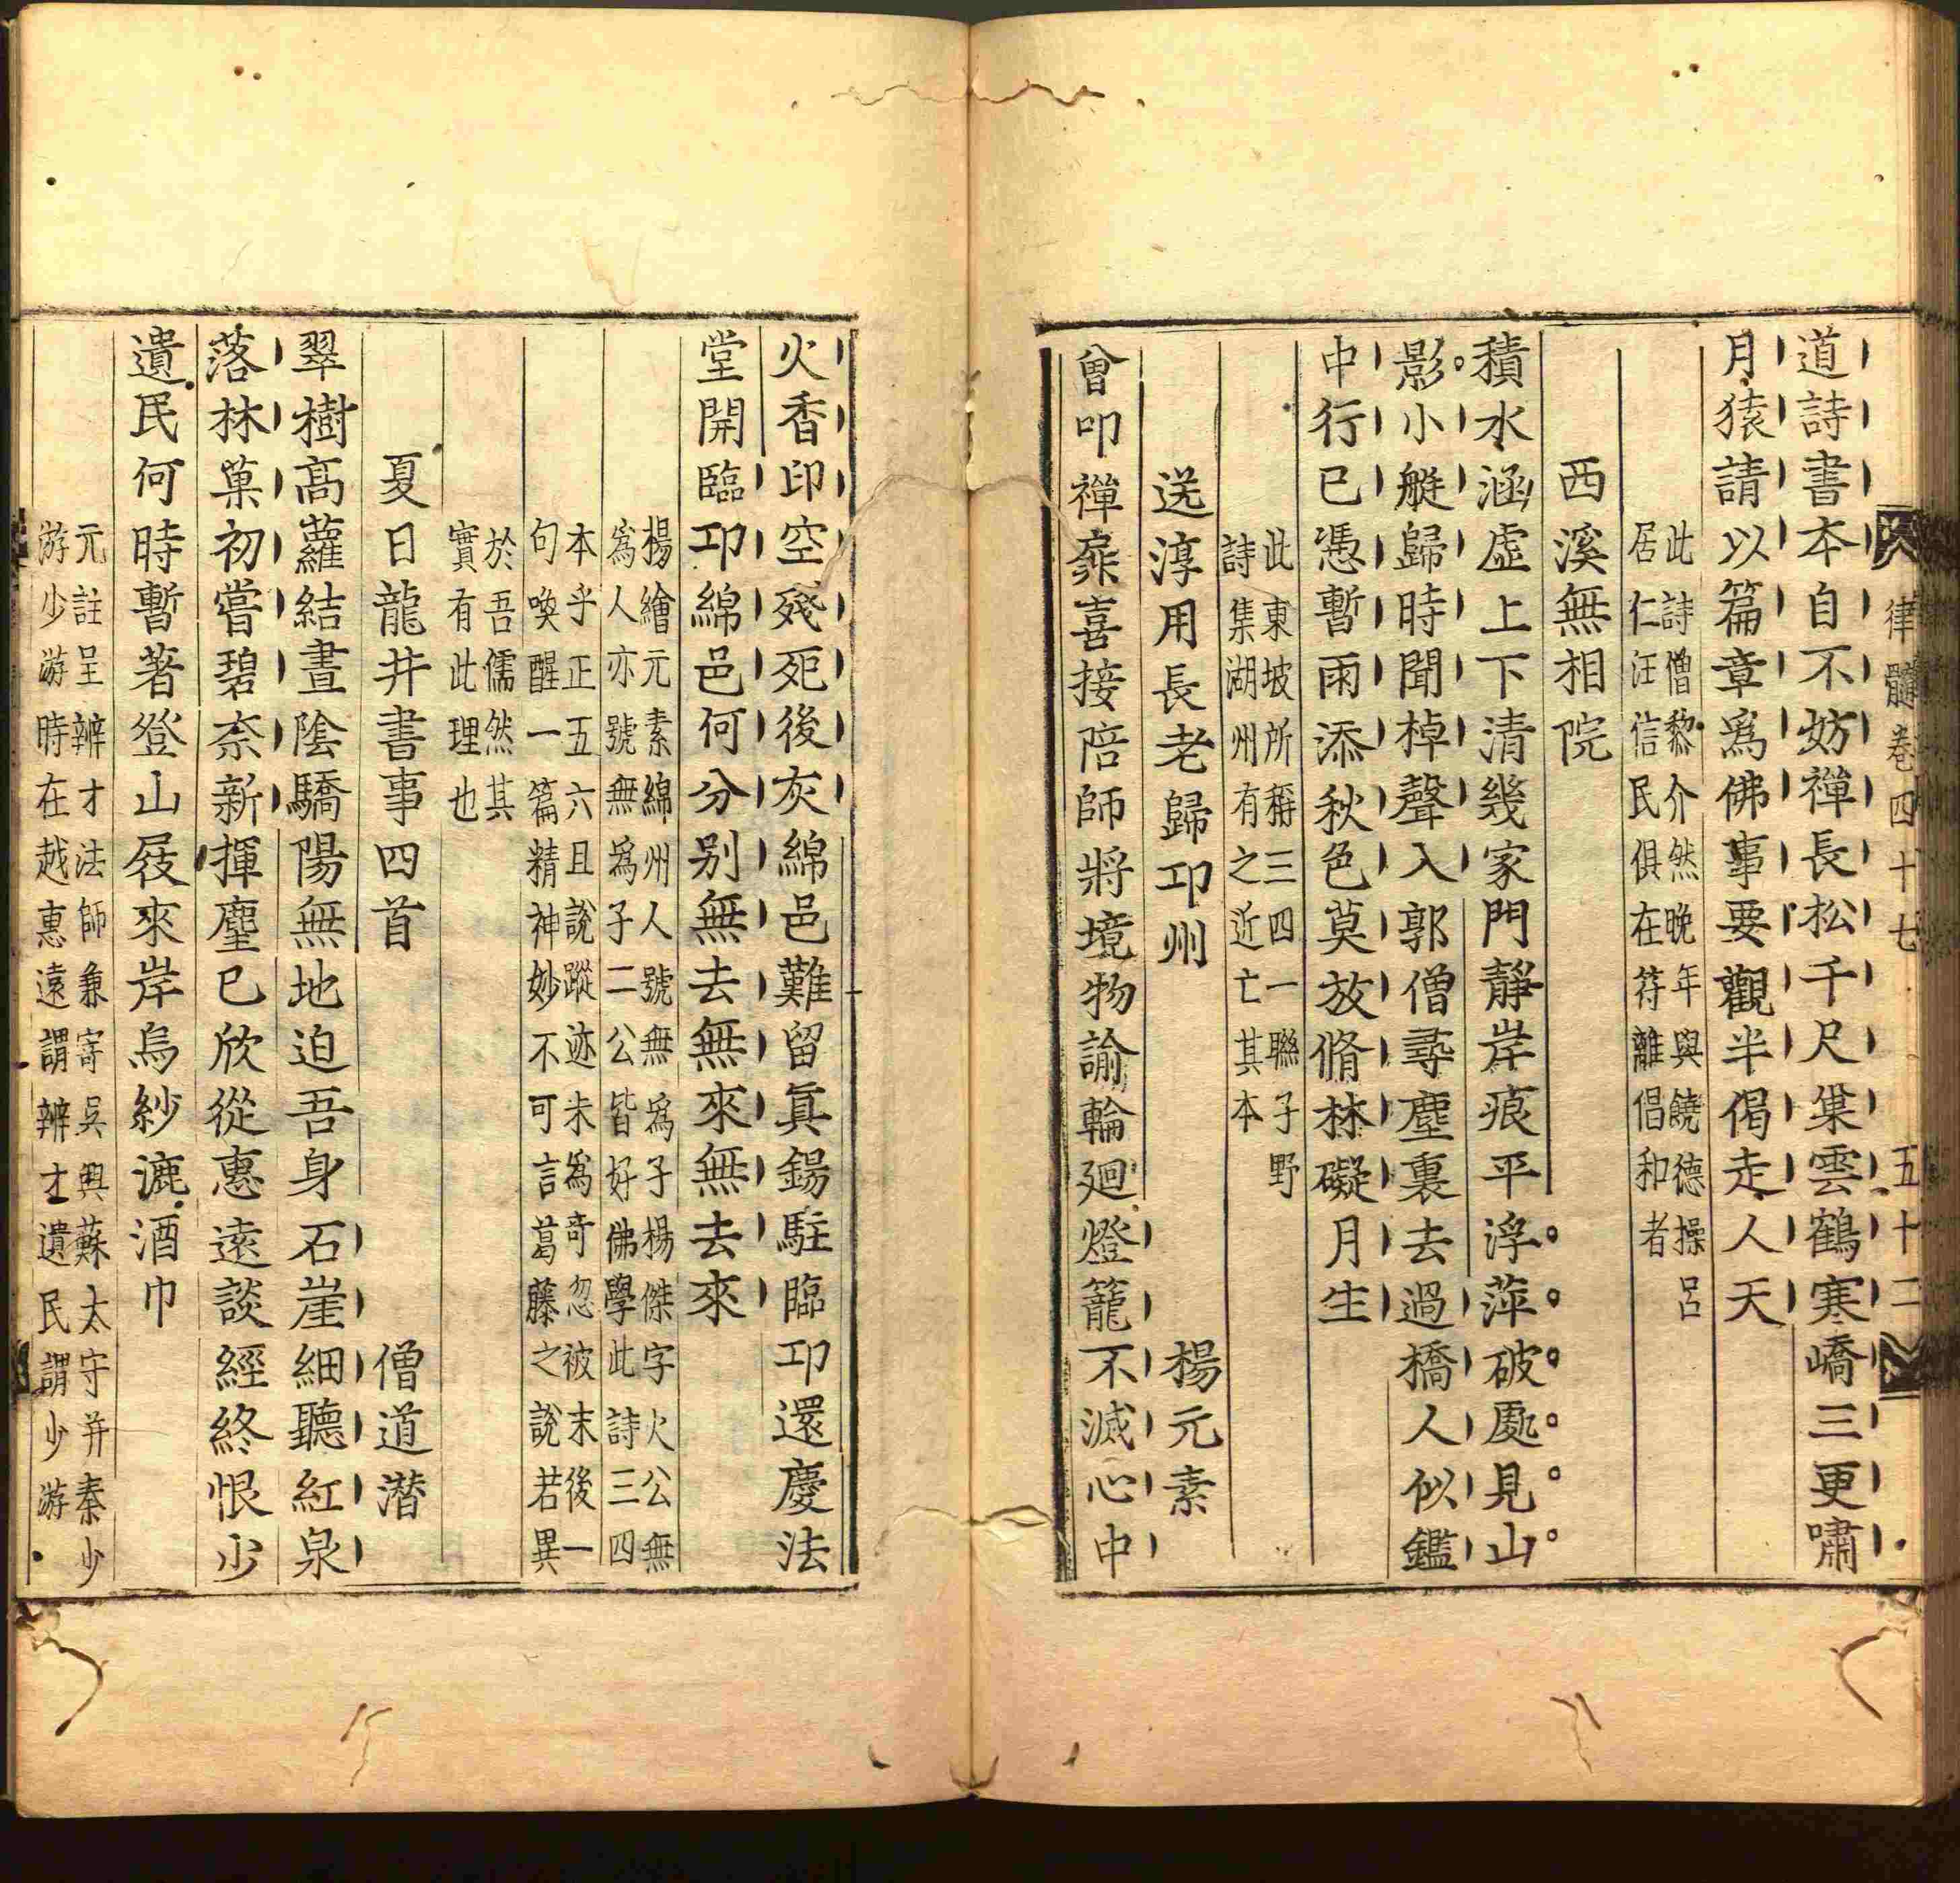 律髓卷四十七
五十二
道詩書本自不妨禪長松千尺巢雲鶴寒嶠三更嘯
月猿請以篇章爲佛事要觀半偈走人天
此詩僧黎介然晚年與饒德操呂
居仁汪信民俱在符離倡和者
西溪無相院
積水涵虛上下清幾家門靜岸痕平浮萍破處見山
影小艇歸時聞棹聲入郭僧尋塵裏去過橋人似鑑
中行已憑暫雨添秋色莫放脩林礙月生
此東坡所稱三四一聯子野
詩集湖州有之近亡其本
送淳用長老歸邛州
楊元素
曾叩禪扉喜接陪師將境物諭輪廻燈籠不滅心中
火香印空殘死後灰綿邑難留眞錫駐臨邛還慶法
堂開臨邛綿邑何分別無去無來無去來
楊繪元素綿州人號無爲子楊傑字火公無
爲人亦號無爲子二公皆好佛學此詩三四
本乎正五六且說蹤迹未爲奇忽被末後一
句喚醒一篇精神妙不可言葛藤之說若異
於吾儒然其
實有此理也
夏日龍井書事四首
僧道潛
翠樹高蘿結晝陰驕陽無地迫吾身石崖細聽紅泉
落林菓初嘗碧柰新揮麈已欣從惠遠談經終恨少
遺民何時暫著登山屐來岸烏紗漉酒巾
元註呈辨才法師兼寄吳興蘇太守并秦少
游少游時在越惠遠謂辨才遺民謂少游